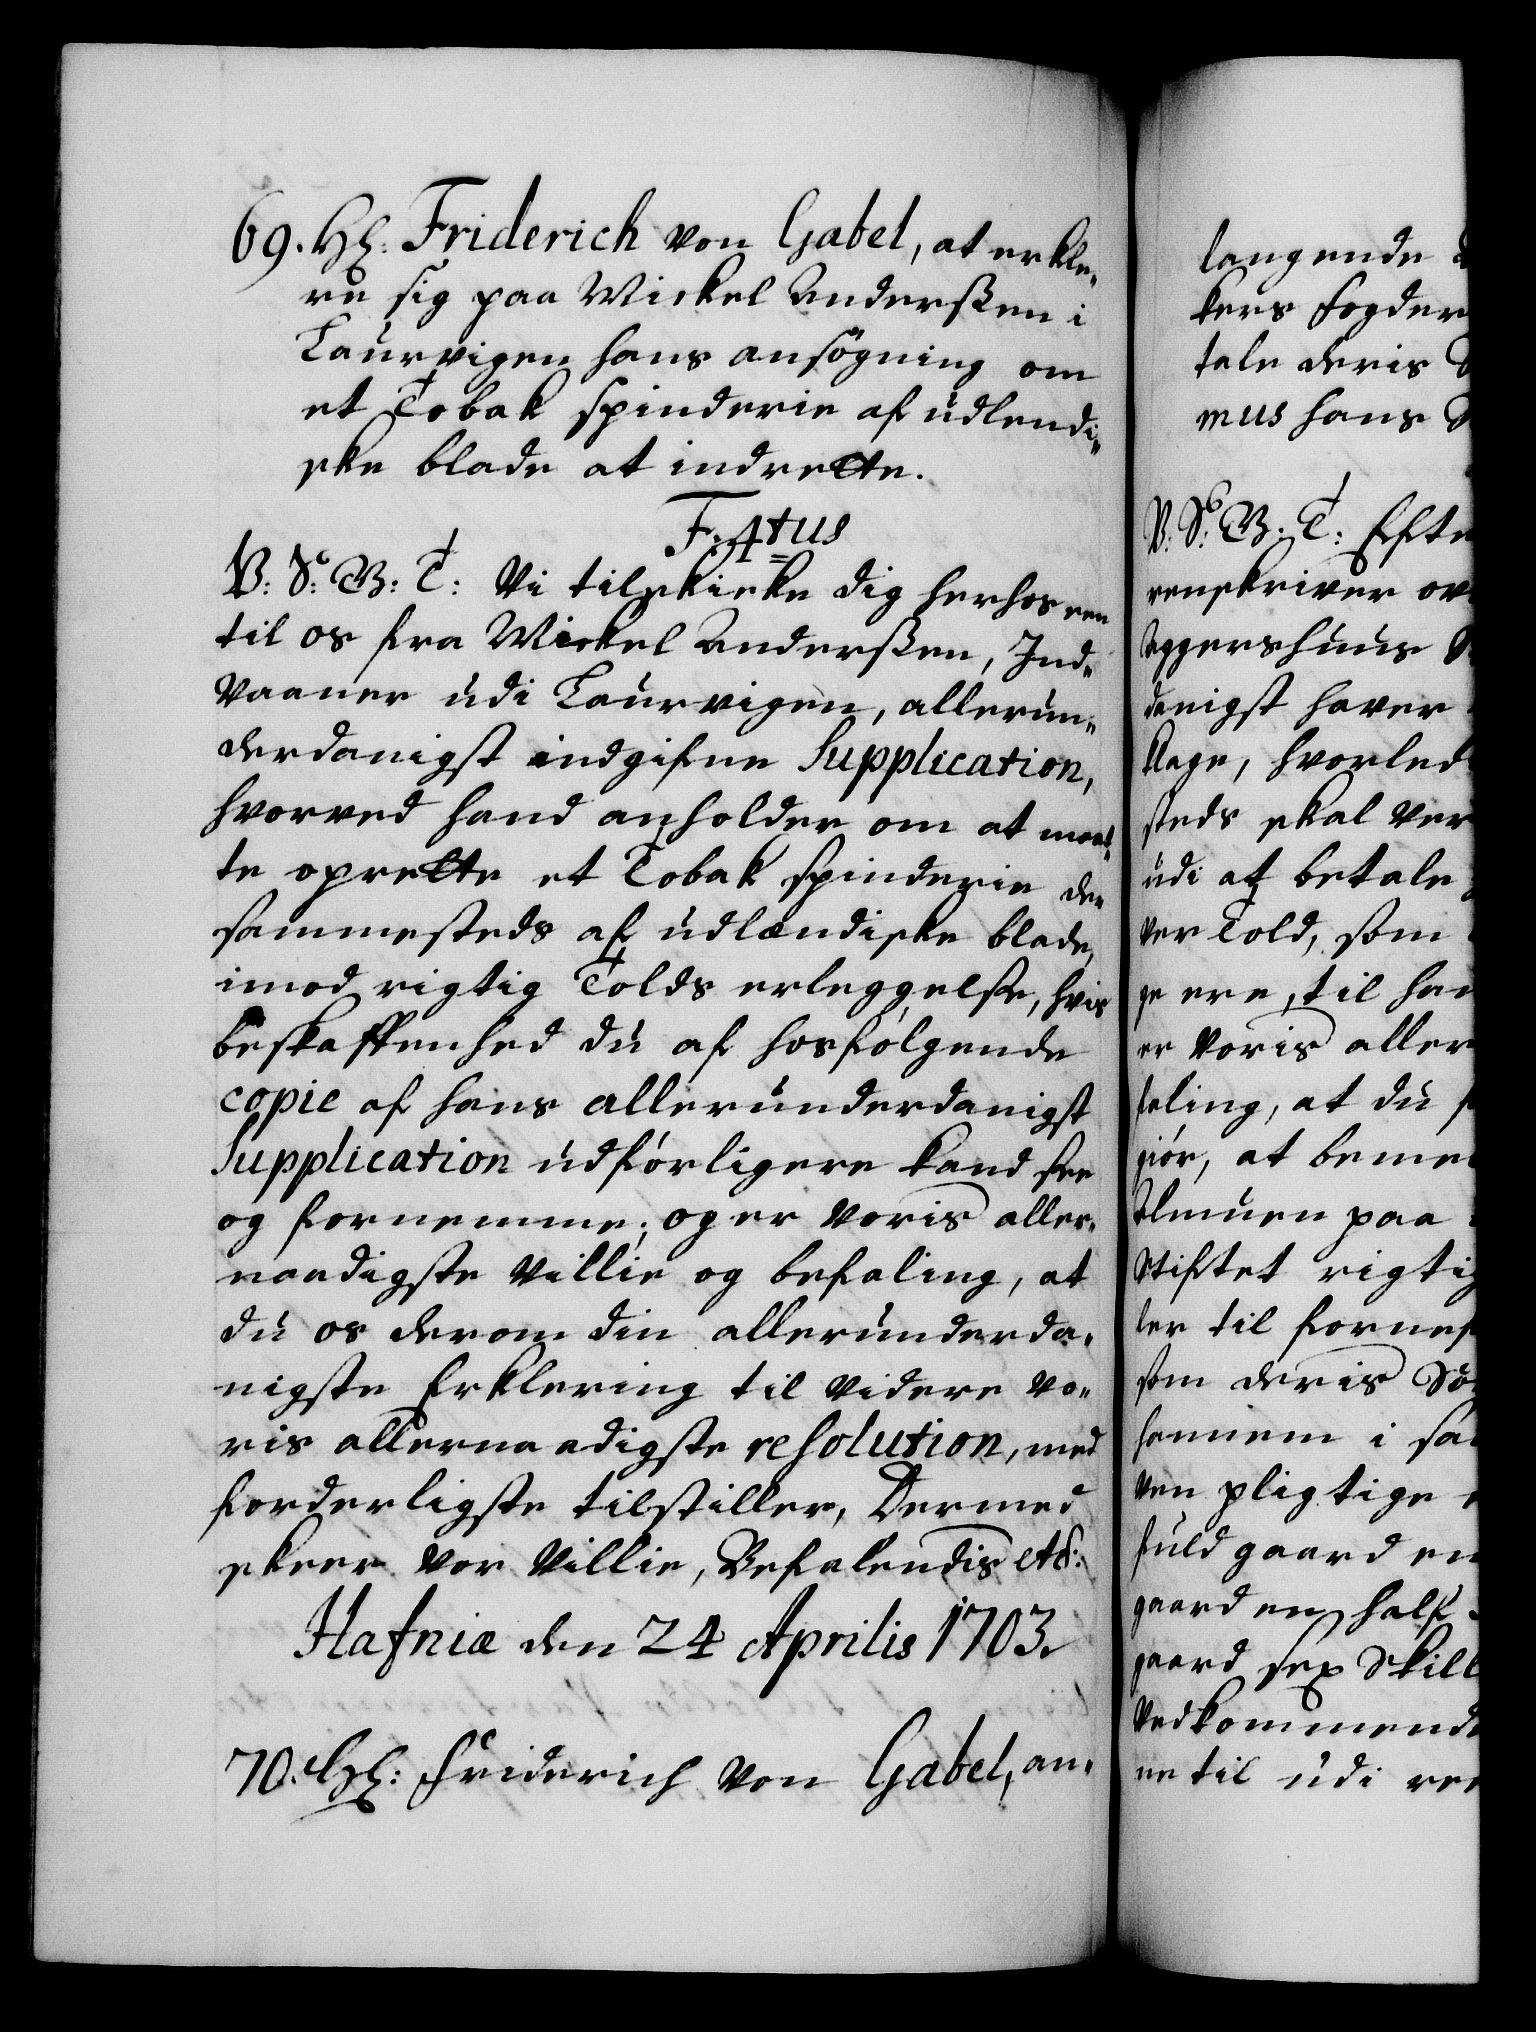 69. Hr: Friderich von Gabel, at erkle„
re sig paa Mickel Anderßen i
Laurvigen hans ansögning om
et Tobak spinderie af udlendi„
ske blade at indrette.
F: 4tus
V: S: G: T: Vi tilskicke dig herhos een
til os fra Mickel Anderßen, Ind„
vaaner udi Laurvigen, allerun„
derdanigst indgifne Supplication,
hvorved hand anholder om at maat„
te oprette et Tobak spinderie der
sammesteds af udlændiske blade,
imod rigtig Tolds erleggelse, hvis
beskaffenhed du af hosfölgende
copie af hans allerunderdanigst
Supplication udförligere kand see
og fornemme; og er voris aller„
naadigste villie og befaling, at
du os derom din allerunderda„
nigste Erklering til videre vo„
ris allernaadigste resolution, med
forderligste tilstiller, Dermed
skeer vor villie, Befalendis etc:
Hafniæ den 24 Aprilis 1703.
70. Hr: Friderich von Gabel, an„
langende
kers fogder
tale deris
mus hans
V: S: G: T: Efter
renskriver
Aggershuus
danigst haver
klage, hvorled
steds skal ver
udi at betale
ver Told, som
ge ere, til han
er voris aller
faling, at du
giör, at beme
Almuen paa
Stiftet rigtig
ler til fornef
som deris Sö
hannem i sa
ven pligtige
fuld gaard en
gaard en half
gaard sex Skill
vedkommende
ne til udi ree